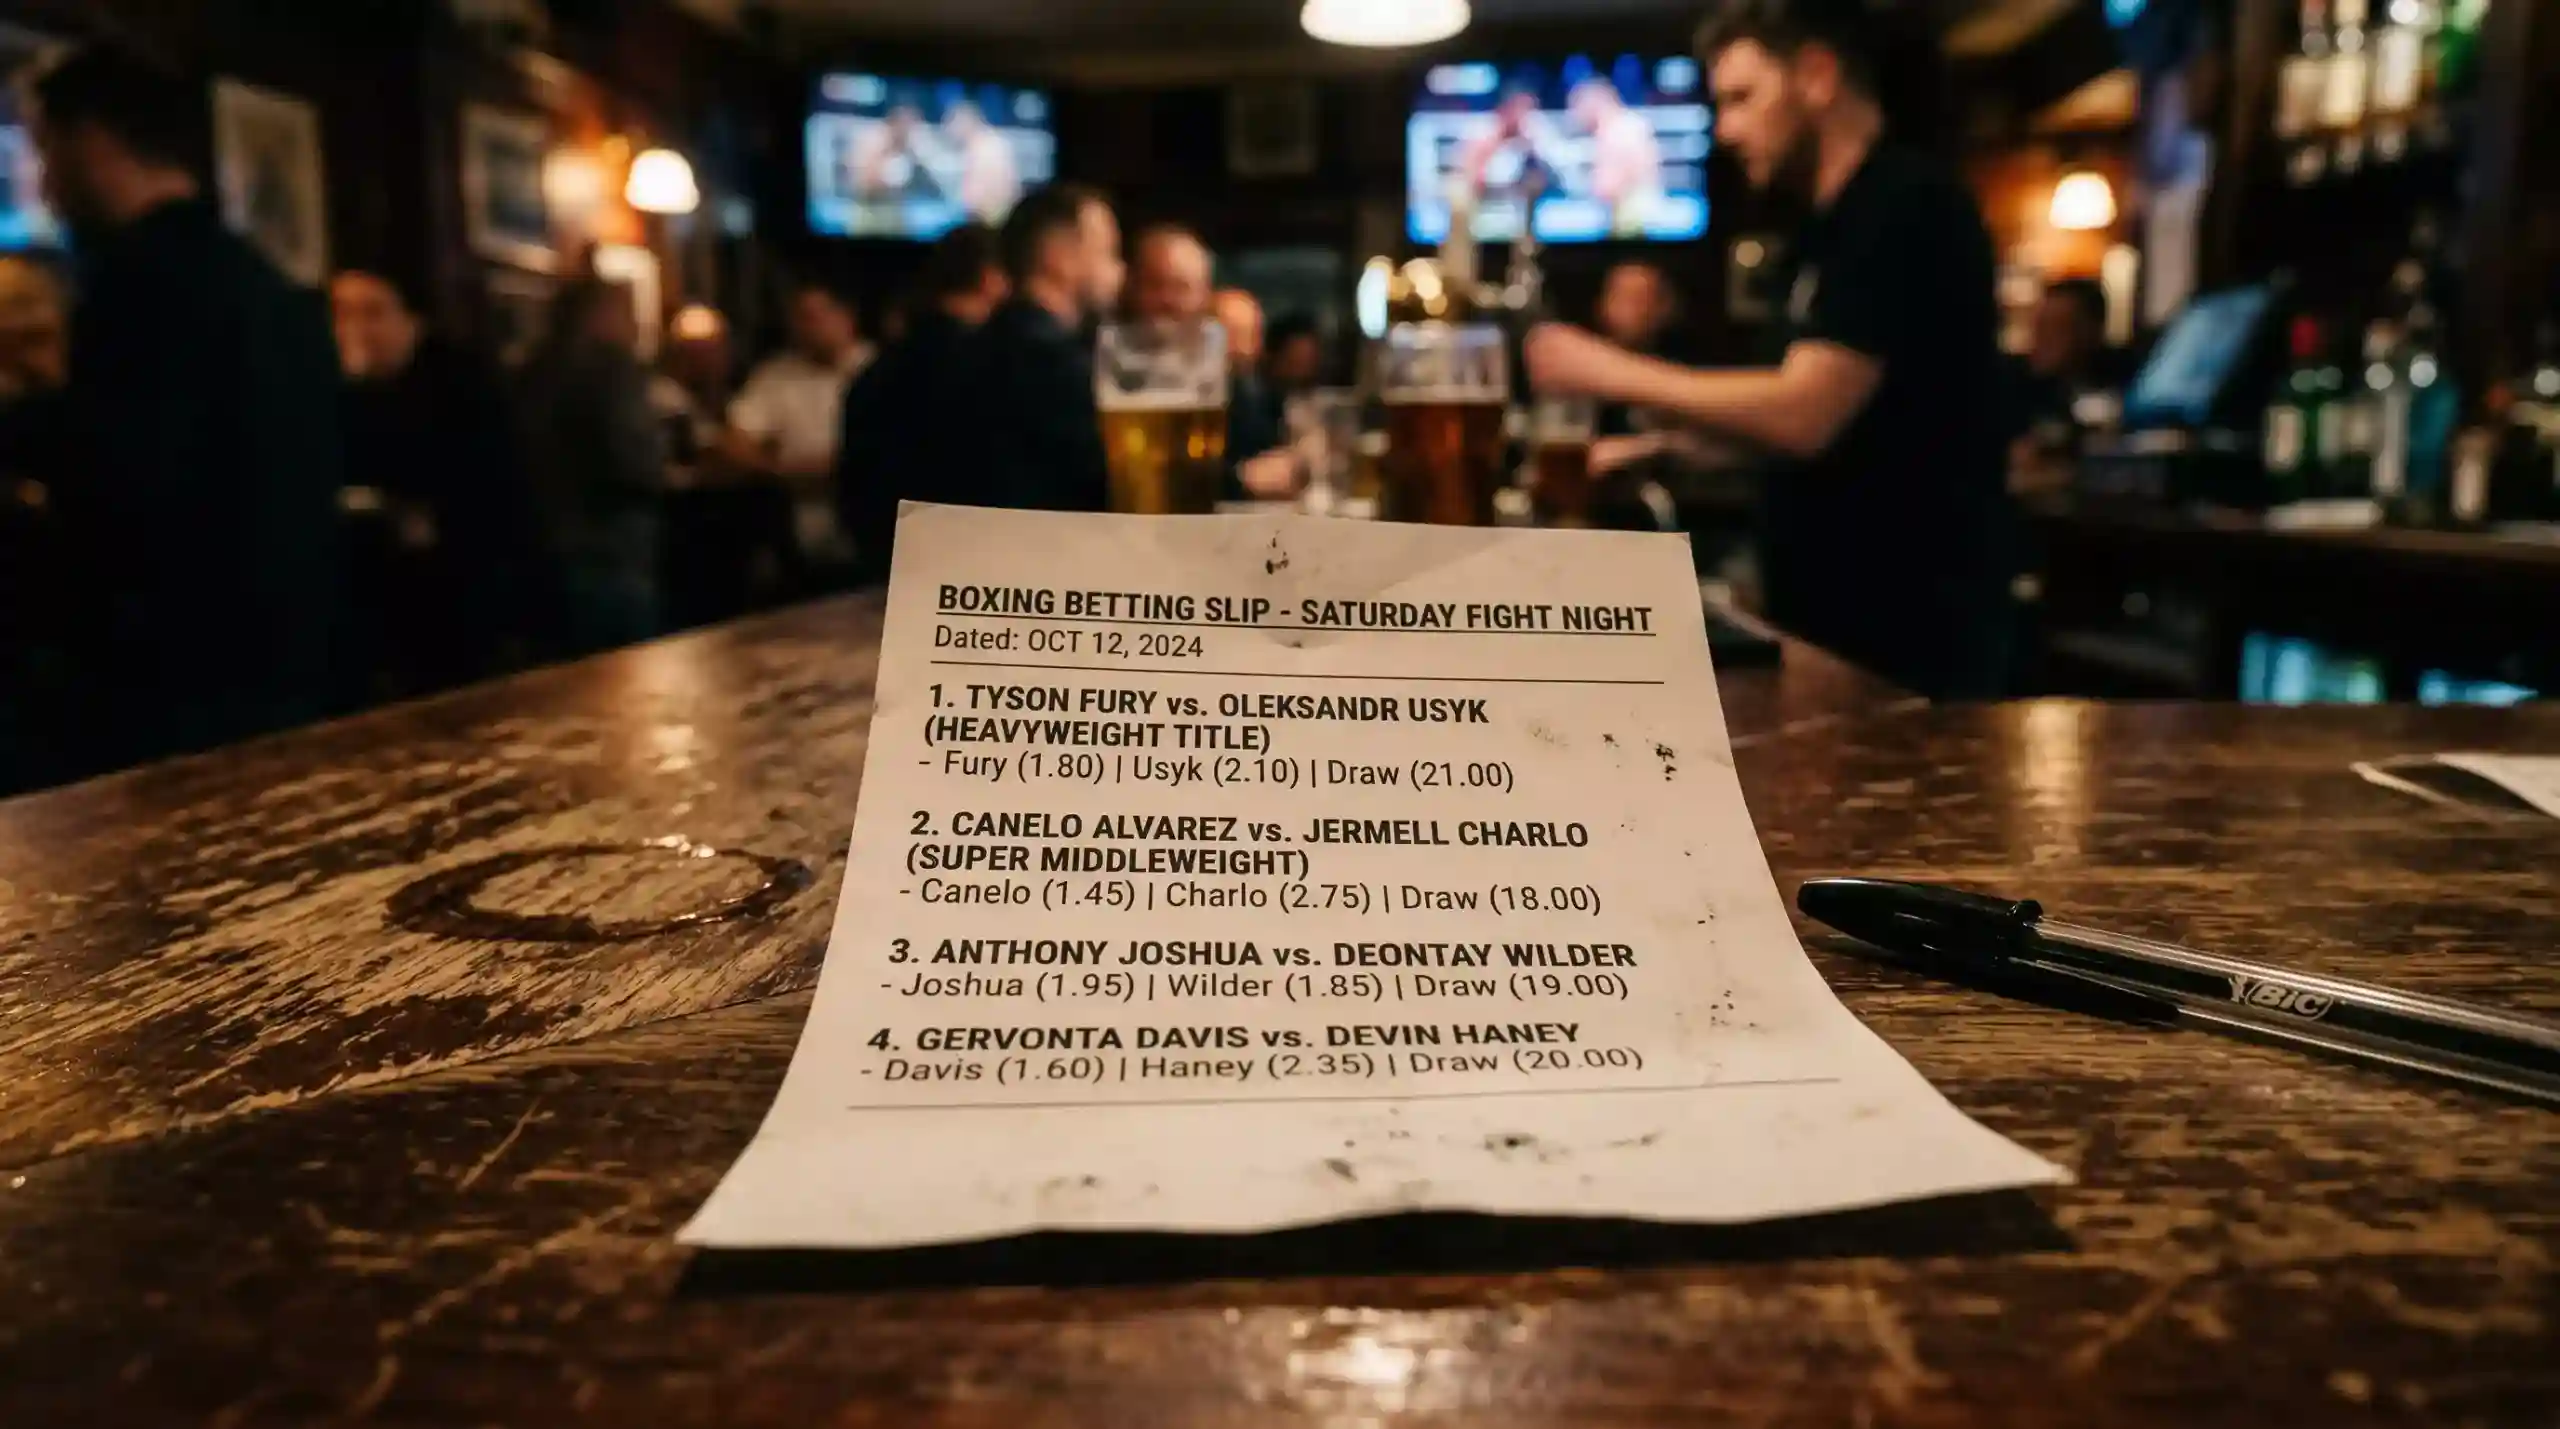 BOXING BETTING SLIP - SATURDAY FIGHT NIGHT
Dated: OCT 12, 2024
1. TYSON FURY vs. OLEKSANDR USYK
(HEAVYWEIGHT TITLE)
- Fury (1.80) | Usyk (2.10) | Draw (21.00)
2. CANELO ALVAREZ vs. JERMELL CHARLO
(SUPER MIDDLEWEIGHT)
- Canelo (1.45) | Charlo (2.75) | Draw (18.00)
3. ANTHONY JOSHUA vs. DEONTAY WILDER
- Joshua (1.95) | Wilder (1.85) | Draw (19.00)
4. GERVONTA DAVIS vs. DEVIN HANEY
- Davis (1.60) | Haney (2.35) | Draw (20.00)
BIC